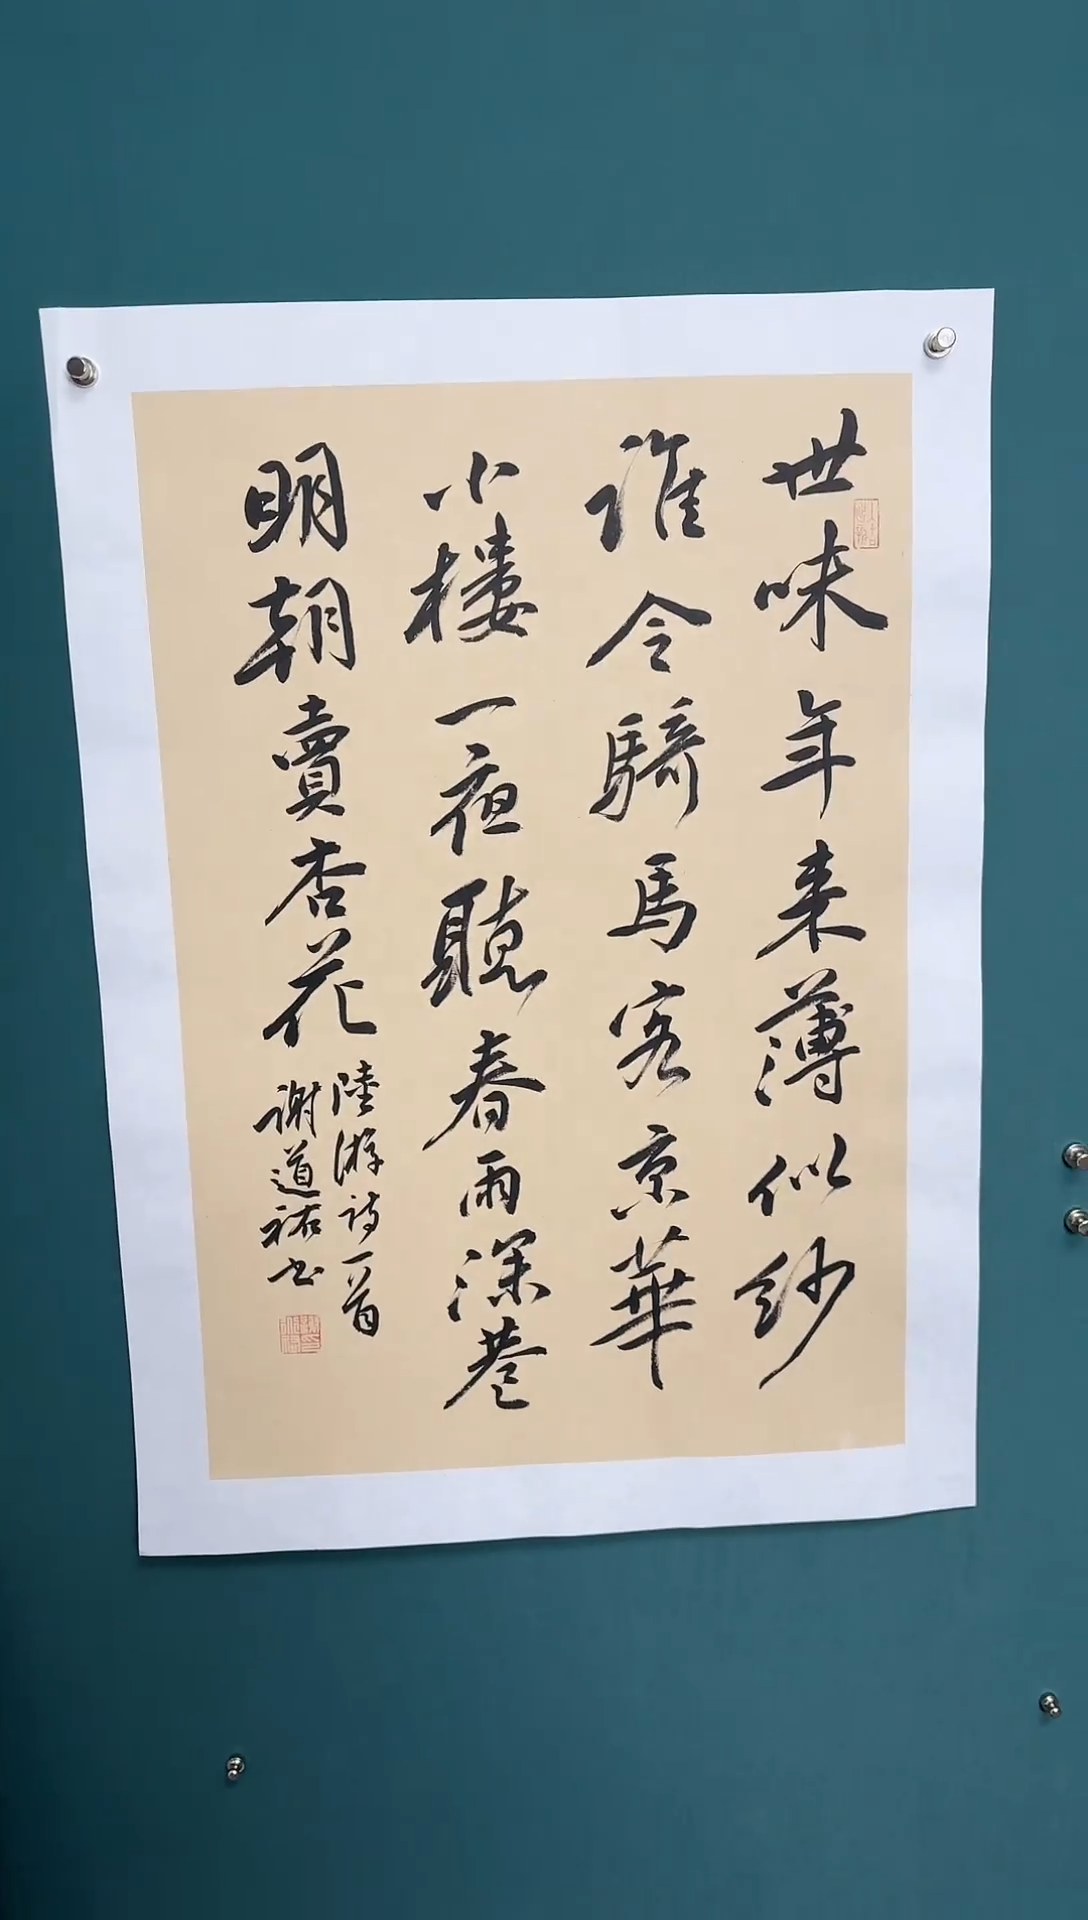 世味年来薄似紗
誰令騎馬客京華
小樓一夜聽春雨深巷
明朝賣杏花
陸游詩一首
謝道祐书